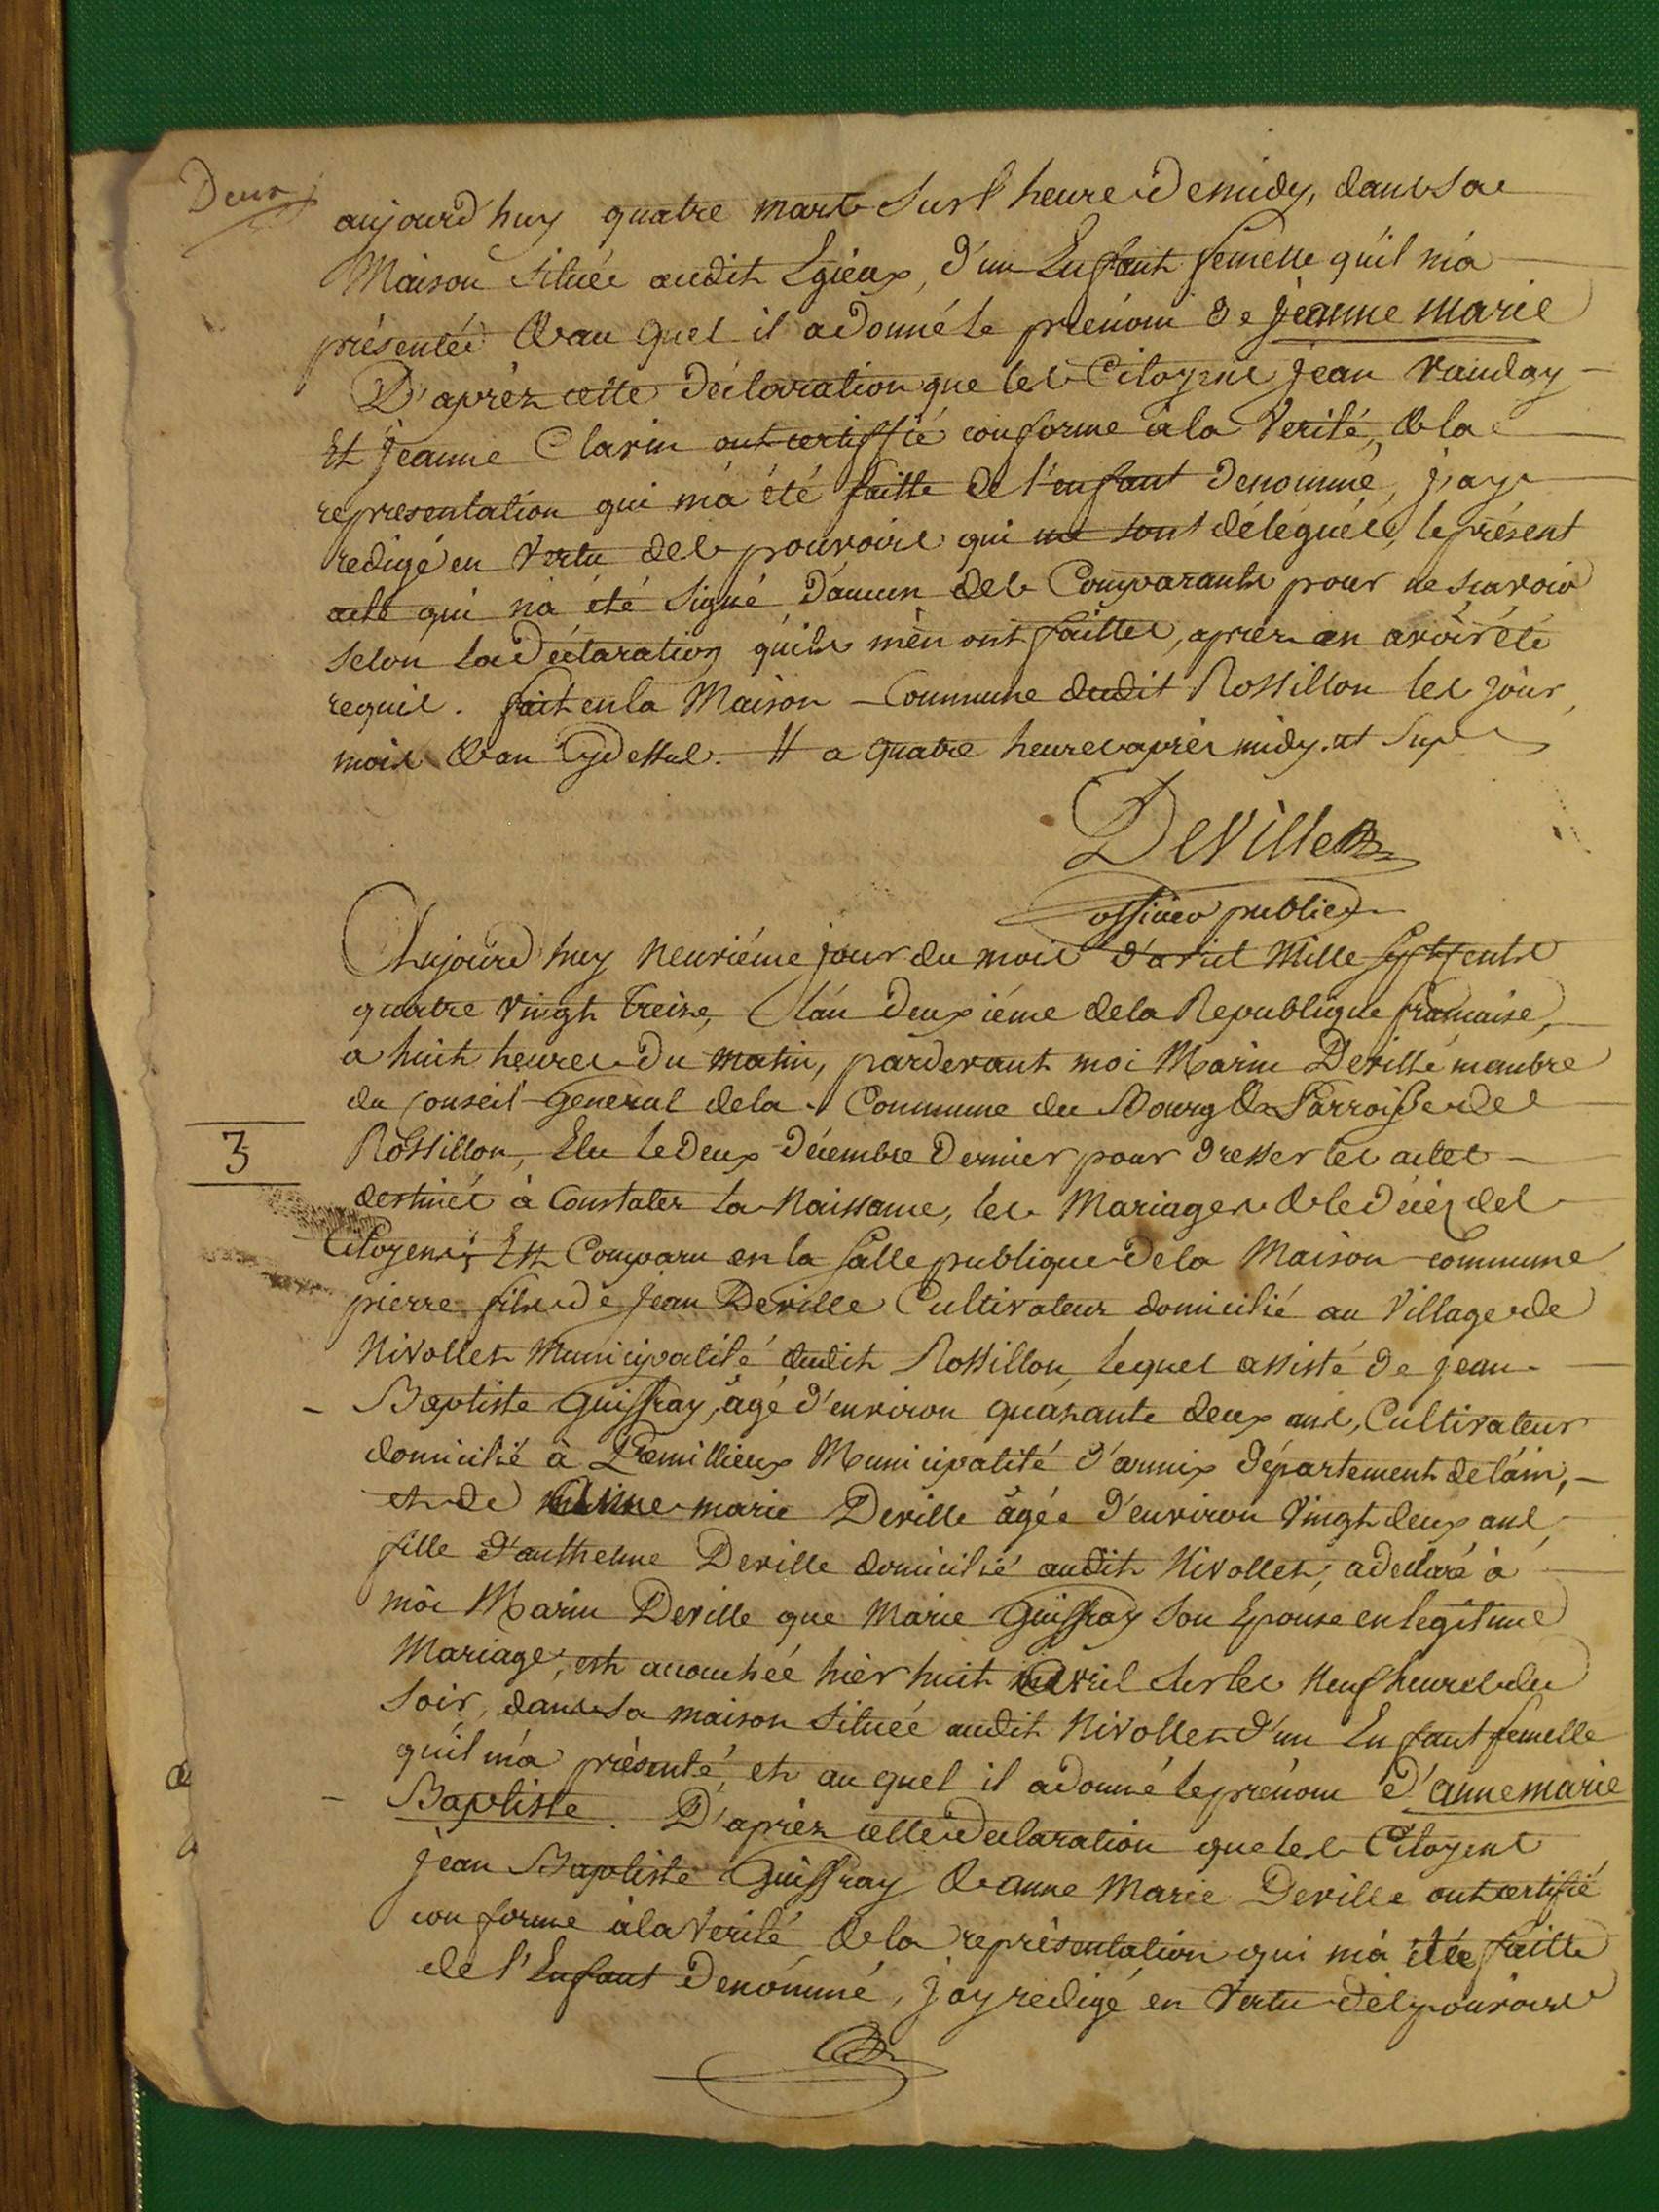 Deux
aujourd'huy quatre mars sur l'heure de midy, dans sa
Maison située audit Egieux, d'un Enfant femelle qu'il m'a
présentée & au quel il a donné le prénom de jeanne marie
D'aprèz cette déclaration que les Citoyens jean Vauday
Et jeanne Clavin ont certiffié conforme à la Verité, & la
representation qui m'a été faitte de l'enfant denommé, j'ay
redigé en Vertu des pouvoirs qui me sont délégués, le présent
acte qui n'a été signé d'aucun des Comparants pour ne scavoir
selon la déclaration qu'ils m'en ont faittes, aprèz en avoir été
requis. fait en la Maison Commune dudit Rossillon les jour,
mois & an Cydessus. # a quatre heures après midy. ut sup
DeVille
officier public
Aujourd'huy neuviéme jour du mois d'avril Mille sept cents
quatre vingt treize, & l'an deuxiéme de la Republique francaise,
a huit heures du matin, pardevant moi Marin Deville membre
du conseil general de la Commune du Bourg & Parroisse de
Rossillon, Elu le deux décembre dernier pour dresser les actes
3
destinés à Constater la Naissance, les Mariages & le décéz des
Citoyens; Est Comparu en la salle publique de la Maison commune
pierre fils de jean Deville Cultivateur domicilié au Village de
Nivollet Municipalité dudit Rossillon, lequel assisté de jean
Baptiste Guiffray, âgé d'environ quarante deux ans, Cultivateur
domicilié à Premillieux Municipalité d'armix département de l'ain,
et de Anne marie Deville âgée d'environ Vingt deux ans
fille d'anthelme Deville domicilié audit Nivollet, a declaré à
moi Marin Deville que Marie Guiffray son Epouse en legitime
Mariage, est accouchée hièr huit avril sur les neuf heures du
soir, dans sa maison située audit Nivollet d'un Enfant femelle
qu'il m'a présenté, et au quel il a donné le prénom d'anne marie
Baptiste. D'aprèz cette declaration que les Citoyens
jean Baptiste Guiffray & anne Marie Deville ont certifié
conforme à la Verité & la représentation qui m'a été faitte
de l'Enfant denommé, j'ay redigé en Vertu des pouvoirs